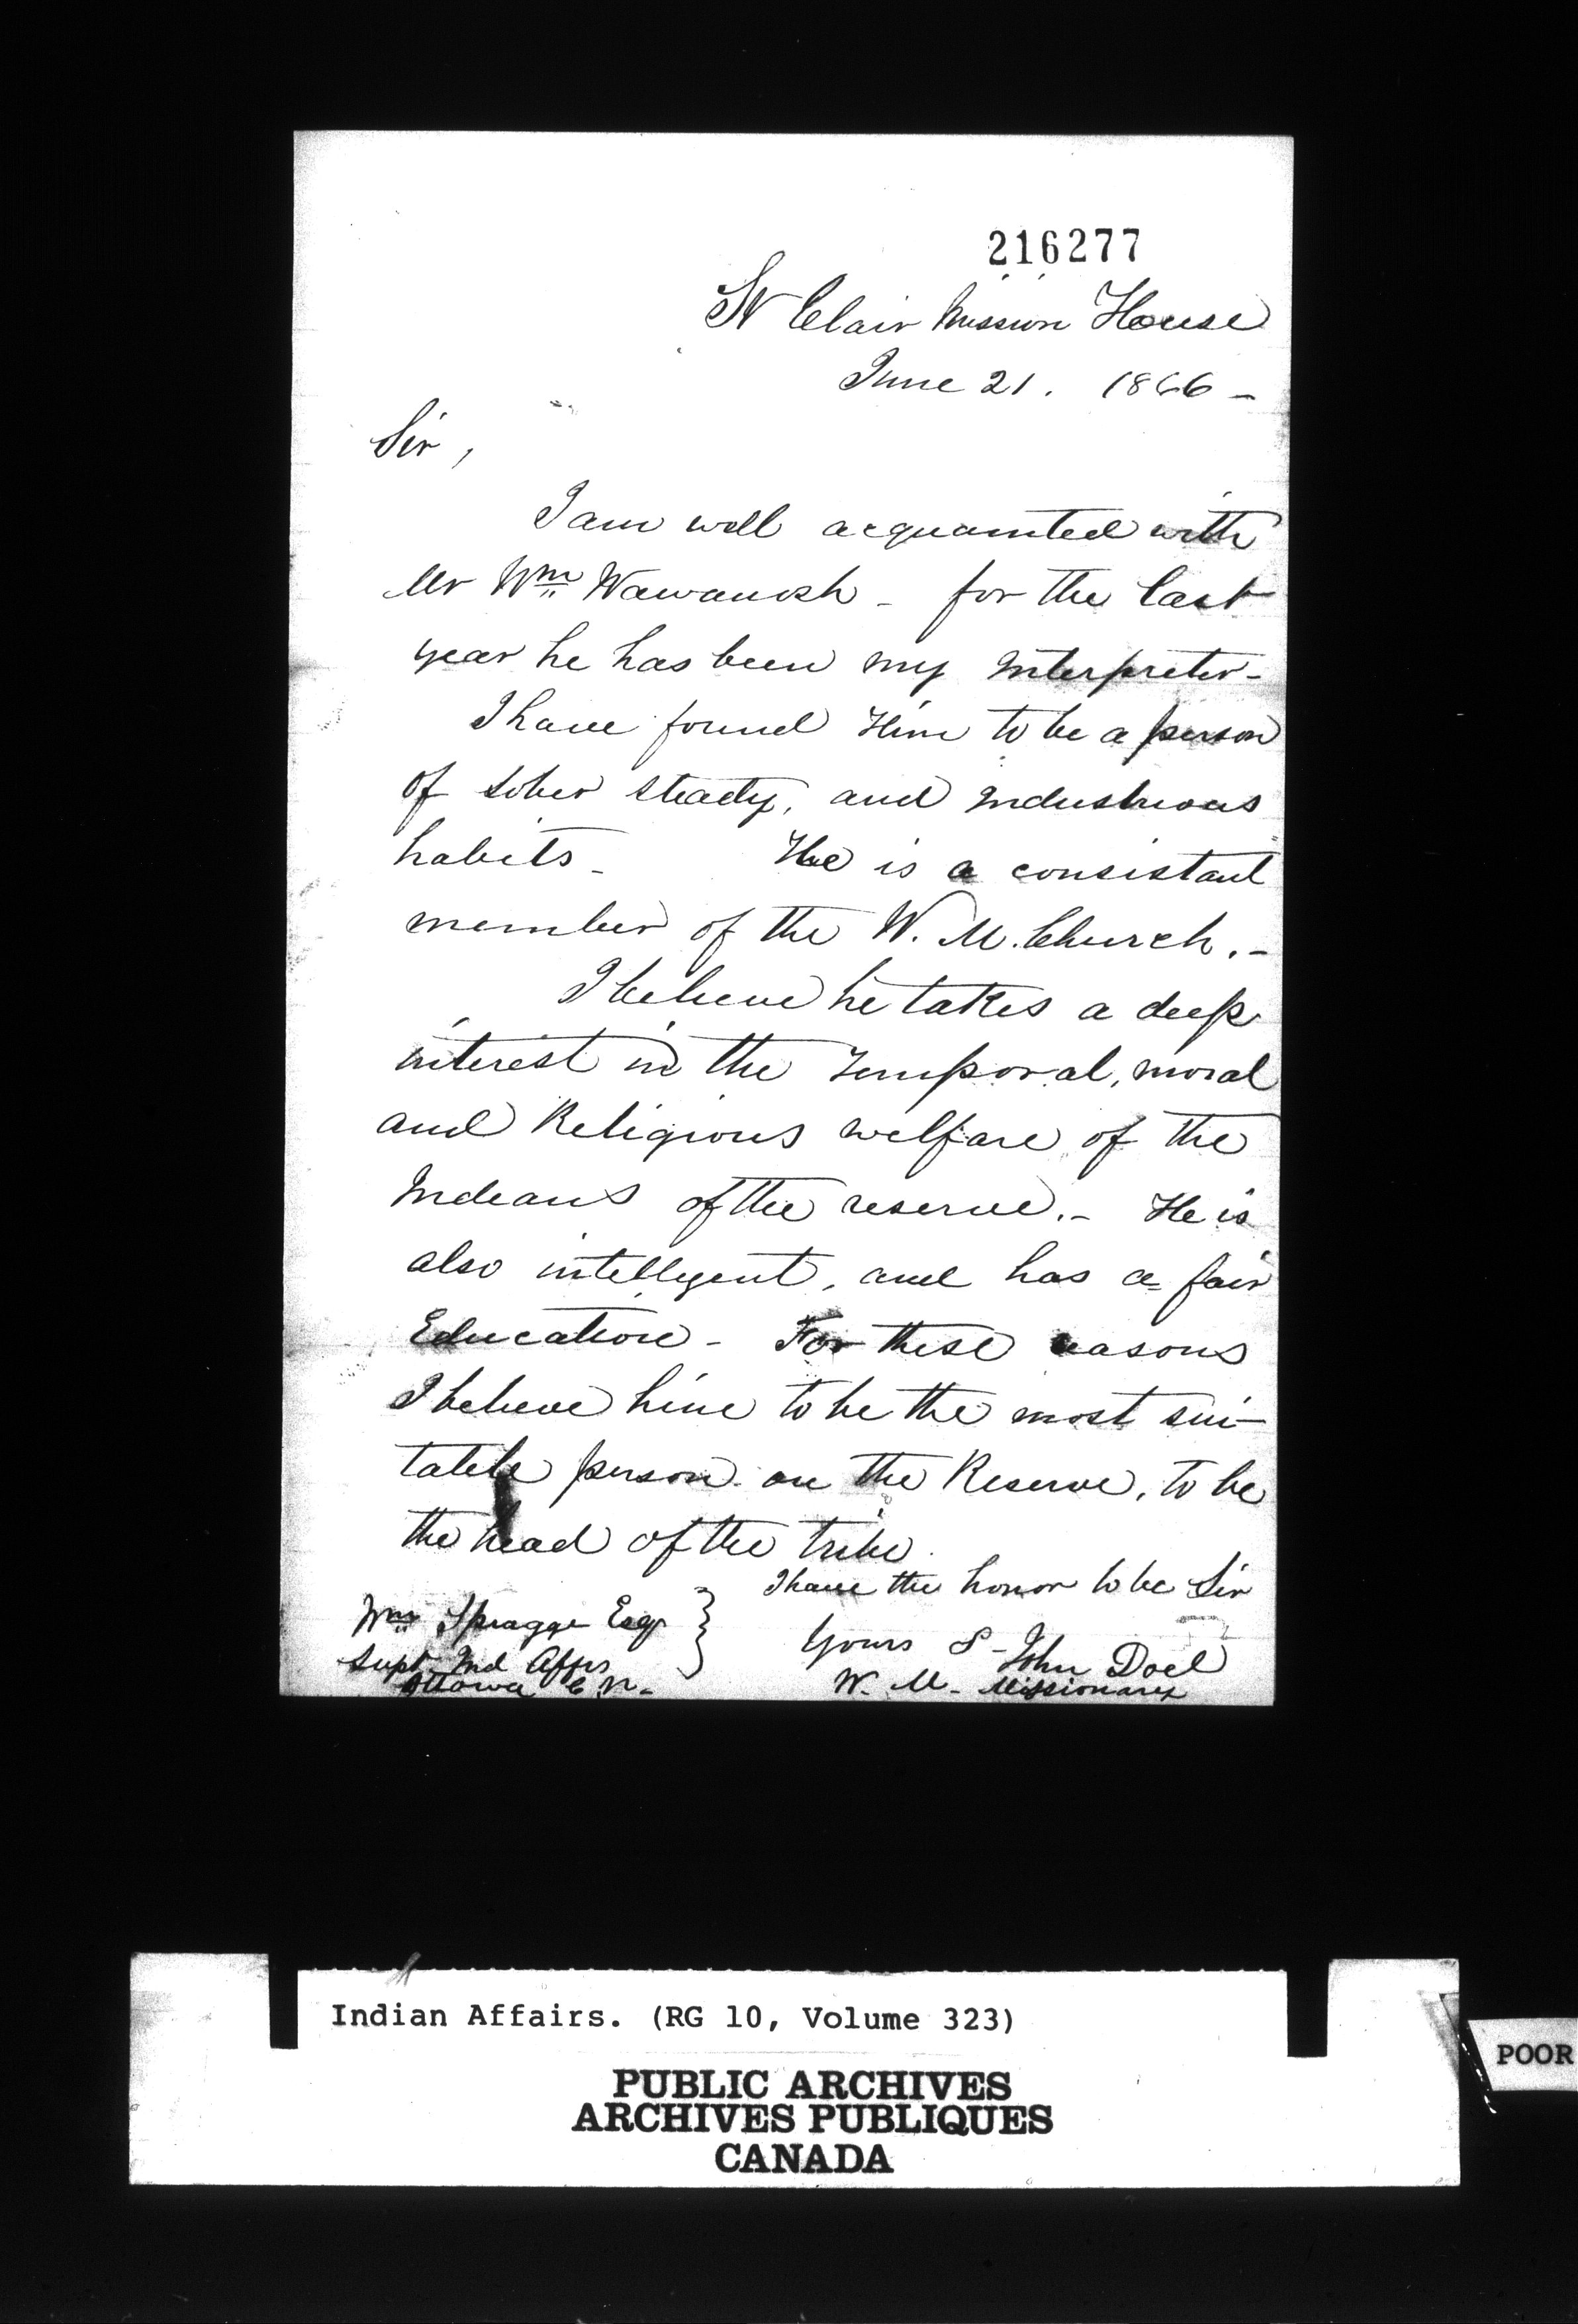 216277
St Clair Mission House
June 21. 1866 -
Sir,
I am well acquainted with
Mr Wm Wawanosh - for the last
year he has been my Interpreter -
I have found Him to be a person
of sober steady, and Industrious
habits - He is a consistant
member of the W. M. Church. -
I believe he takes a deep
interest in the Temporal, moral
and Religious welfare of the
Indians of the reserve. - He is
also intelligent, and has a fair
Education - For these reasons
I believe him to be the most sui-
table person on the Reserve, to be
the head of the tribe.
I have the honor to be Sir
Wm Spragge Esq }
Yours &-
John Doel
Supt Ind Affrs
Ottawa C W.
W. M. Missionary
Indian Affairs. (RG 10, Volume 323)
PUBLIC ARCHIVES
ARCHIVES PUBLIQUES
CANADA
POOR